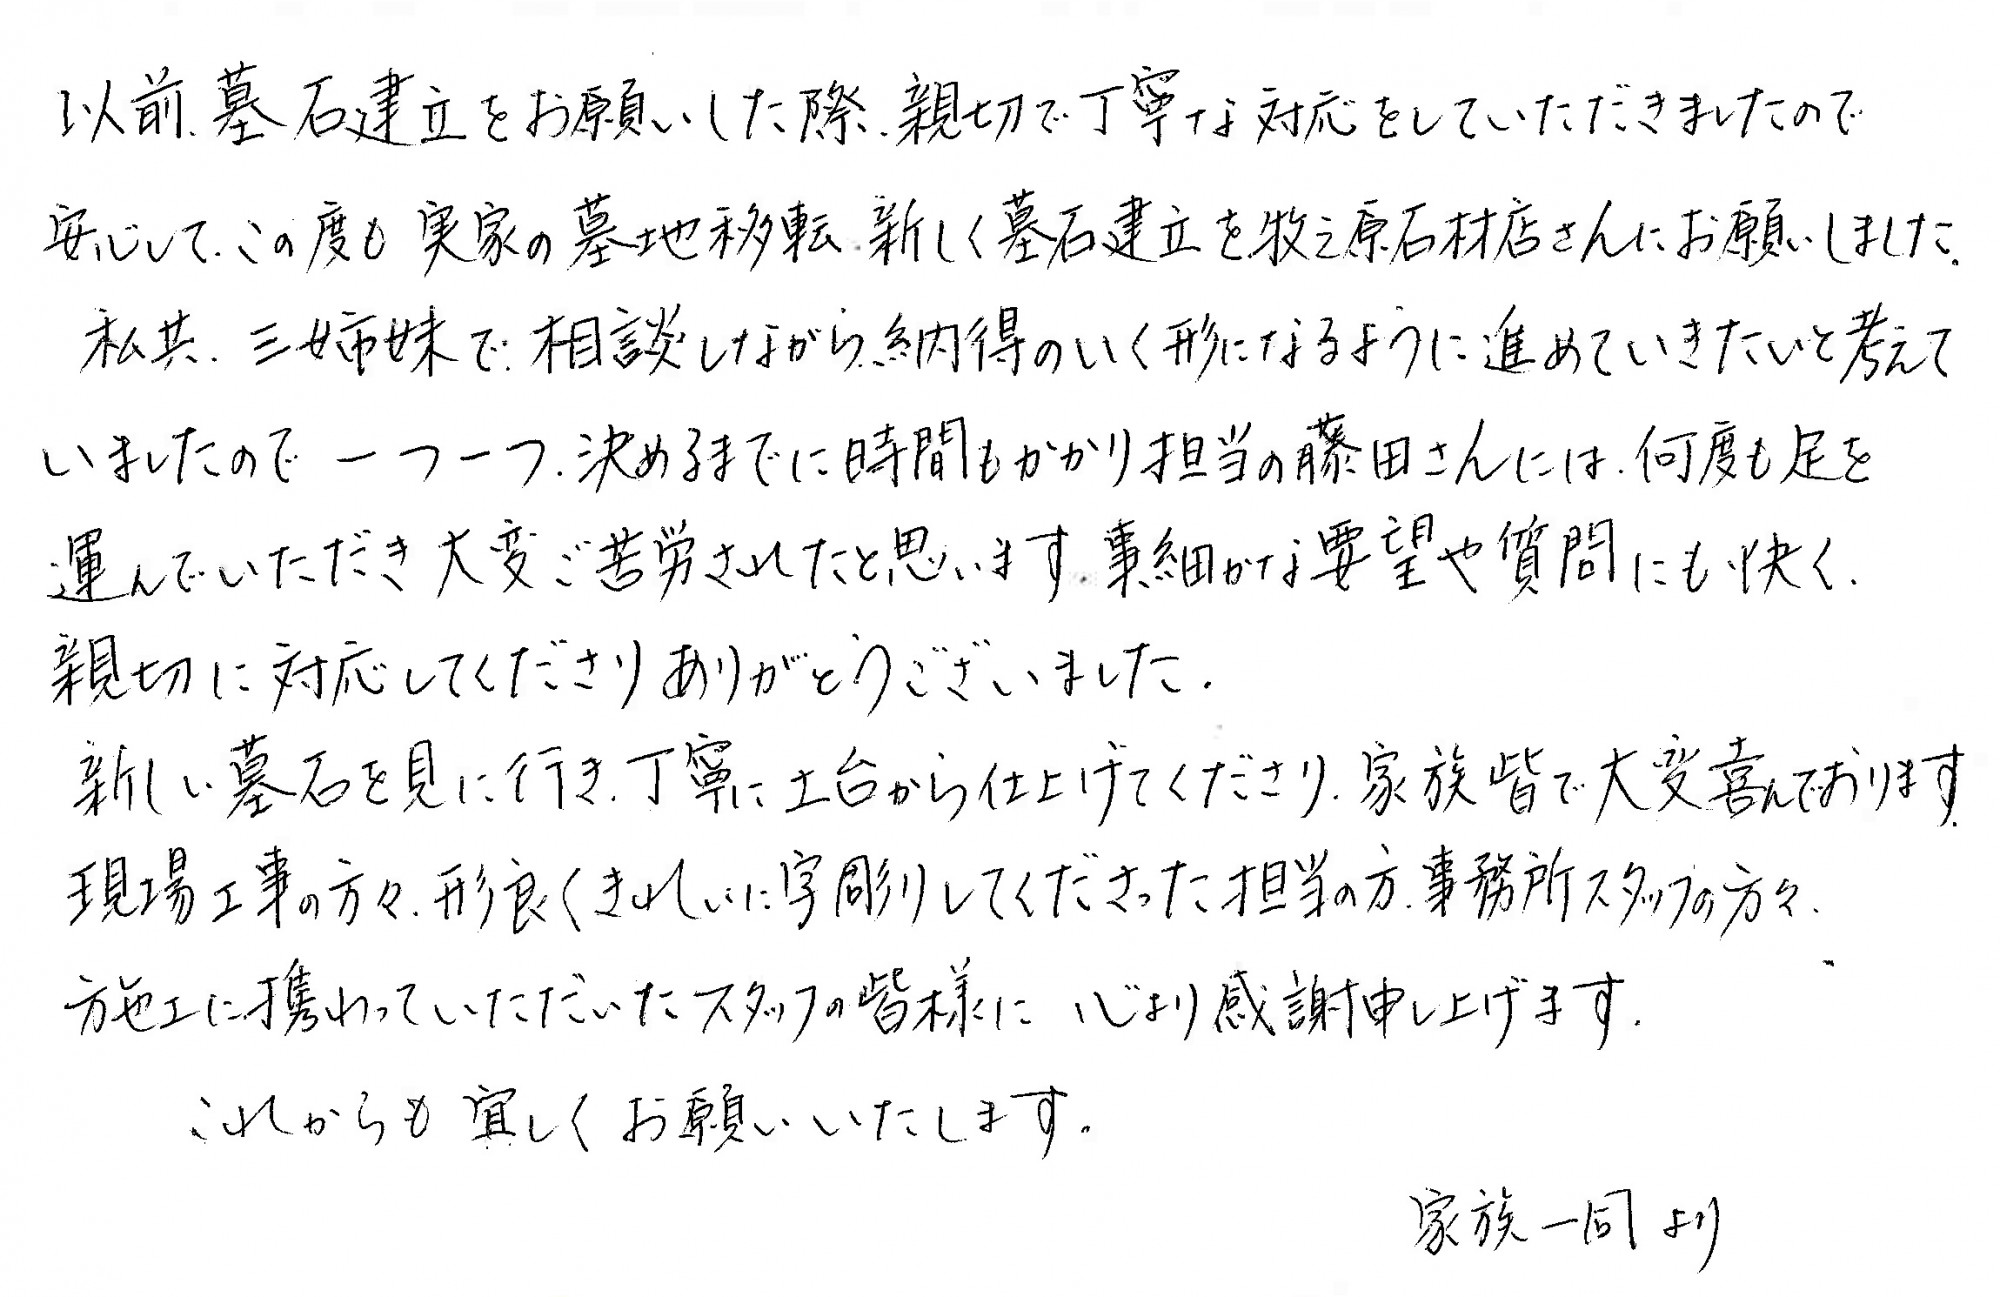 以前、墓石建立をお願いした際、親切で丁寧な対応をしていただきましたので
安心して、この度も実家の墓地移転、新しく墓石建立を牧之原石材店さんにお願いしました。
私共、三姉妹で、相談しながら、納得のいく形になるように進めていきたいと考えて
いましたので一つ一つ、決めるまでに時間もかかり担当の藤田さんには、何度も足を
運んでいただき大変ご苦労されたと思います。事細かな要望や質問にも快く、
親切に対応してくださりありがとうございました。
新しい墓石を見に行き、丁寧に土台から仕上げてくださり、家族皆で大変喜んでおります。
現場工事の方々、形良くきれいに字彫りしてくださった担当の方、事務所スタッフの方々、
施工に携わっていただいたスタッフの皆様に 心より感謝申し上げます。
これからも宜しくお願いいたします。
家族一同より